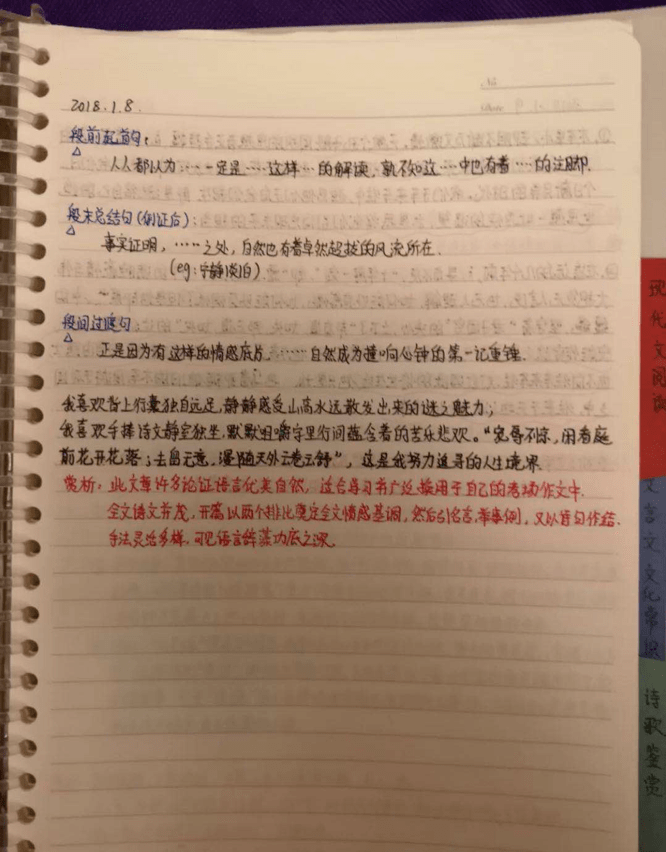 2018.1.8.
段前起首句:
人人都认为:……一定是……这样…的解读,孰不知这…中也有着…的注脚.
段末总结句(例证后):
事实证明,……之处,自然也有着卓然超拔的风流所在.
(eg:宁静淡泊)
段间过渡句
正是因为有这样的情感底片,……自然成为撞响心钟的第一记重锤.
我喜欢背上行囊独自远足,静静感受山高水远散发出来的谜之魅力;
我喜欢手捧诗文静室独坐,默默咀嚼字里行间蕴含着的苦乐悲欢。"宠辱不惊,闲看庭
前花开花落;去留无意,漫随天外云卷云舒",这是我努力追寻的人生境界.
赏析:此文章许多论证语言优美自然,适合学习者广泛接用于自己的考场作文中.
全文诗文并茂,开篇以两个排比奠定全文情感基调,然后引名言,举事例,又以首句作结.
手法灵活多样,可见语言辞藻功底之深.
现代文阅读
文言文文化常识
诗歌鉴赏